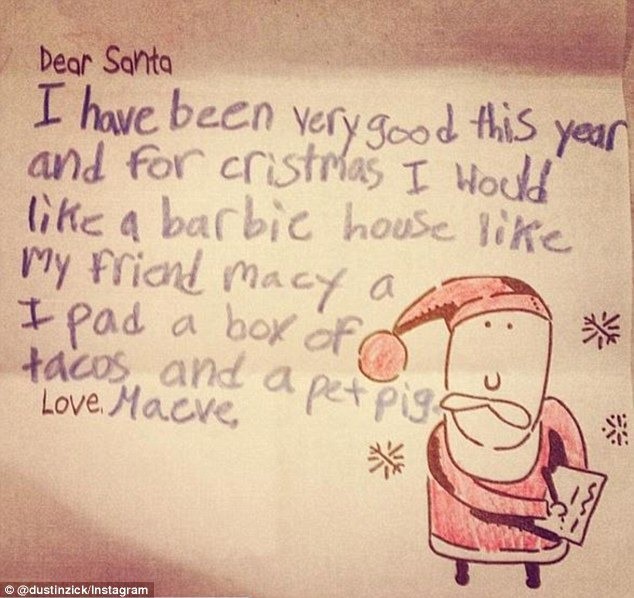 Dear Santa
I have been very good this year
and for cristmas I Would
like a barbie house like
my friend macy a
I pad a box of
tacos and a pet pig.
Love, Maeve,
© @dustinzick/Instagram